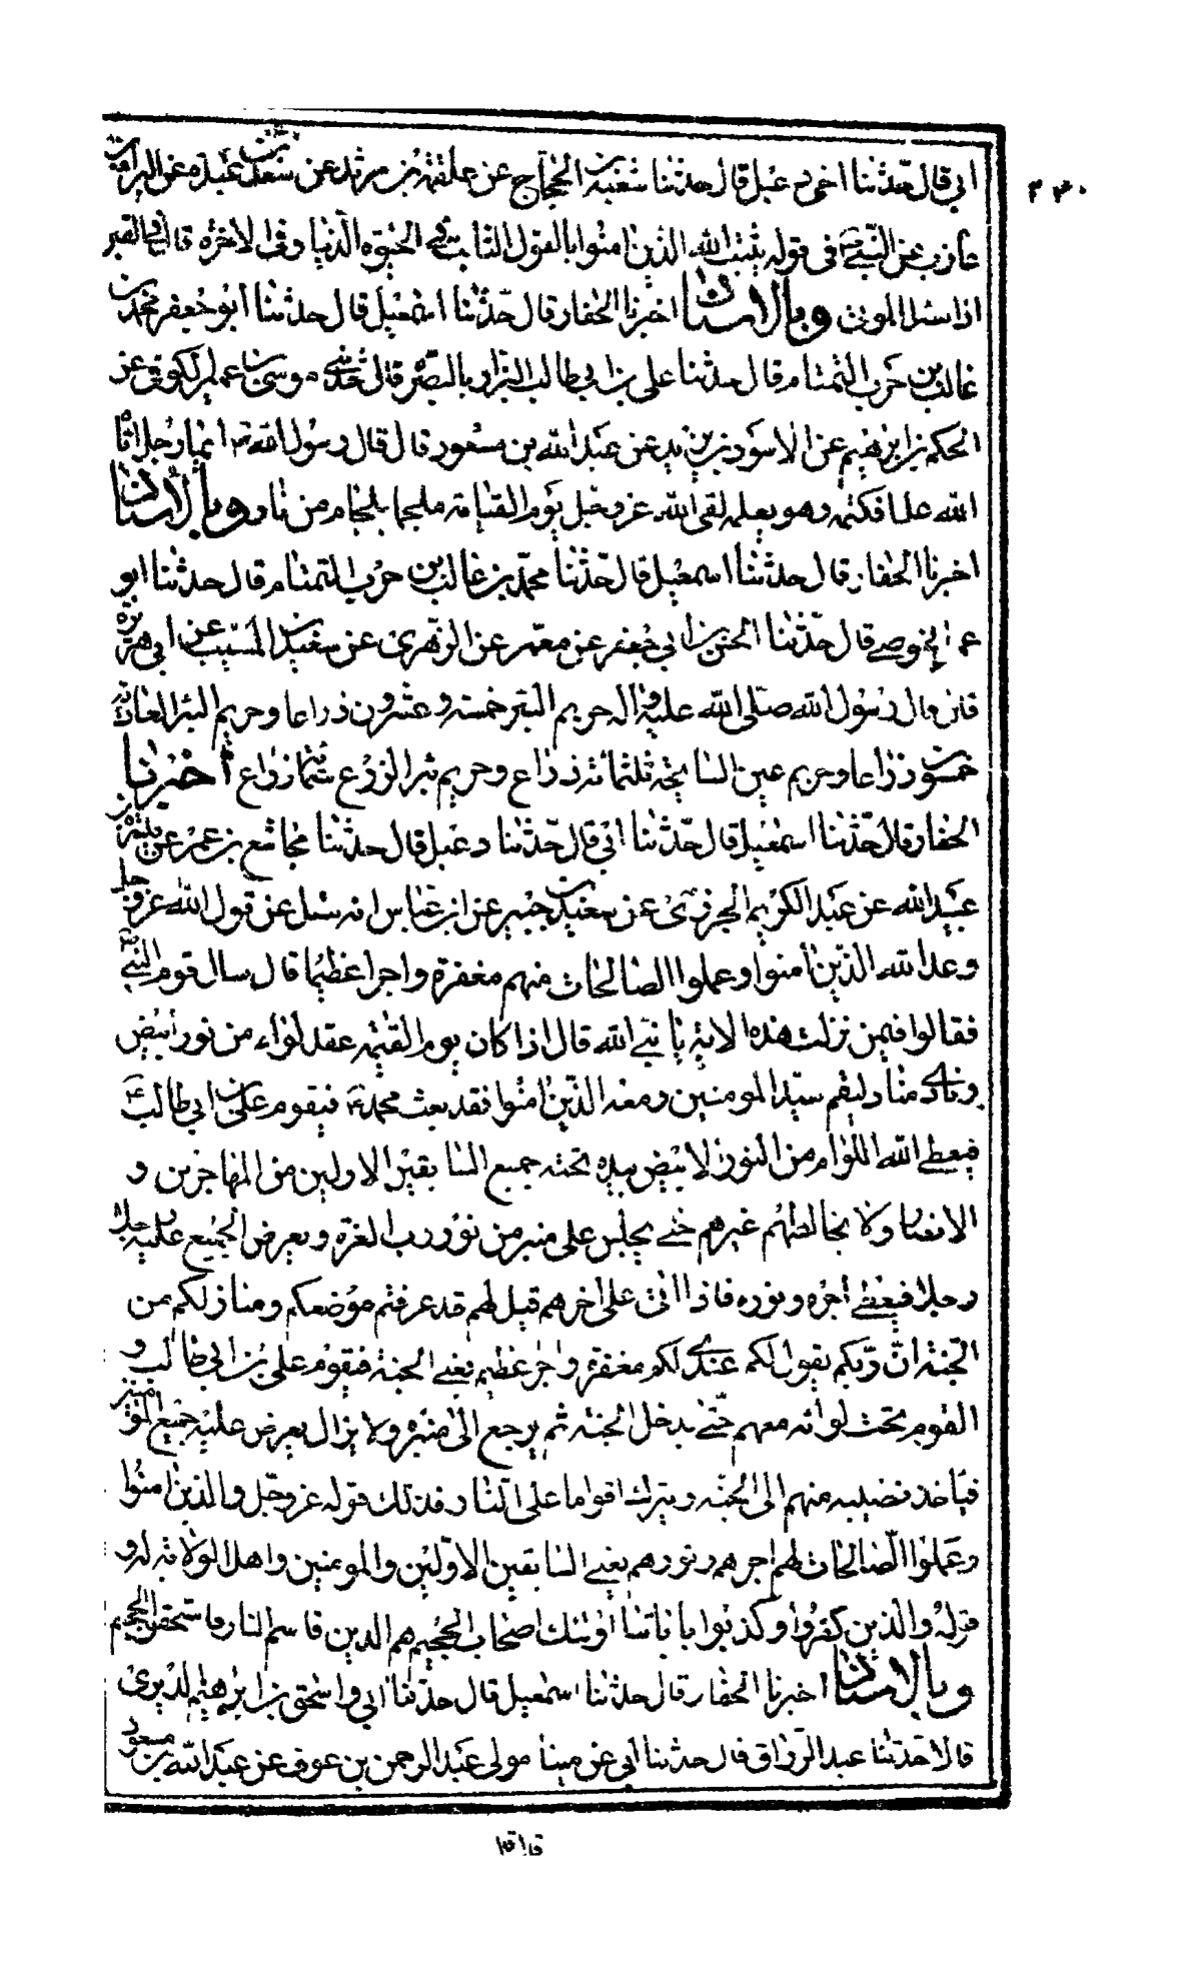 ٢٣٠
ابي قال حدثنا اخي دعبل قال حدثنا شعبة بن الحجاج عن علقمة بن مرثد عن سعد بن عبيدة عن البراء بن
عازب عن النبي ص في قوله يثبت الله الذين امنوا بالقول الثابت في الحيوة الدنيا وفي الاخرة قال في القبر
اذا سئل الموتى وبالاسناد اخبرنا الحفار قال حدثنا اسمعيل قال حدثنا ابو جعفر محمد بن
غالب بن حرب التمتام قال حدثنا علي بن ابي طالب البزار بالبصرة قال حدثني موسى بن عمير الكوفي عن
الحكم بن ابرهيم عن الاسود بن يزيد عن عبد الله بن مسعود قال قال رسول الله ص ايما رجل اتاه
الله علما فكتمه وهو يعلمه لقى الله عز وجل يوم القيامة ملجما بلجام من نار وبالاسناد
اخبرنا الحفار قال حدثنا اسمعيل قال حدثنا محمد بن غالب بن حرب التمتام قال حدثنا ابو
عمر الحوضي قال حدثنا الحسن بن ابي جعفر عن معمر عن الزهري عن سعيد بن المسيب عن ابي هريرة
قال قال رسول الله صلى الله عليه واله حريم البقر خمسة وعشرون ذراعا وحريم البئر العادية
خمسون ذراعا وحريم عين السايحة ثلثمائة ذراع وحريم بئر الزرع ستمائة ذراع اخبرنا
الحفار قال حدثنا اسمعيل قال حدثنا ابي قال حدثنا دعبل قال حدثنا مجاشع بن عمر عن ميسرة بن
عبيد الله عن عبد الكريم الجزري عن سعيد بن جبير عن ابن عباس انه سئل عن قول الله عز وجل
وعد الله الذين امنوا وعملوا الصالحات منهم مغفرة واجرا عظيما قال سال قوم النبي ص
فقالوا فيمن نزلت هذه الاية يا نبي الله قال اذا كان يوم القيمة عقد لواء من نور ابيض
ونادى مناد ليقم سيد المومنين ومعه الذين امنوا فقد بعث محمد ص فيقوم علي بن ابي طالب ع
فيعطي الله اللواء من النور الابيض بيده تحته جميع السابقين الاولين من المهاجرين و
الانصار لا يخالطهم غيرهم حتى يجلس على منبر من نور رب العزة ويعرض الجميع عليه رجلا
رجلا فيعطي اجره ونوره فاذا اتى على اخرهم قيل لهم قد عرفتم موضعكم ومنازلكم من
الجنة ان ربكم يقول لكم عندي لكم مغفرة واجر عظيم يعني الجنة فيقوم علي بن ابي طالب و
القوم تحت لوائه معهم حتى يدخل الجنة ثم يرجع الى منبره ولا يزال يعرض عليه جميع المؤمنين
فياخذ نصيبه منهم الى الجنة ويترك اقواما على النار فذلك قوله عز وجل والذين امنوا
وعملوا الصالحات لهم اجرهم ونورهم يعني السابقين الاولين والمومنين واهل الولاية له و
قوله والذين كفروا وكذبوا باياتنا اولئك اصحاب الجحيم هم الذين قاسم النار فاستحقوا الجحيم
وبالاسناد اخبرنا الحفار قال حدثنا اسمعيل قال حدثنا ابي واسحق بن ابرهيم الديري
قالا حدثنا عبد الرزاق قال حدثنا ابي عن مينا مولى عبد الرحمن بن عوف عن عبد الله بن مسعود
قال قال